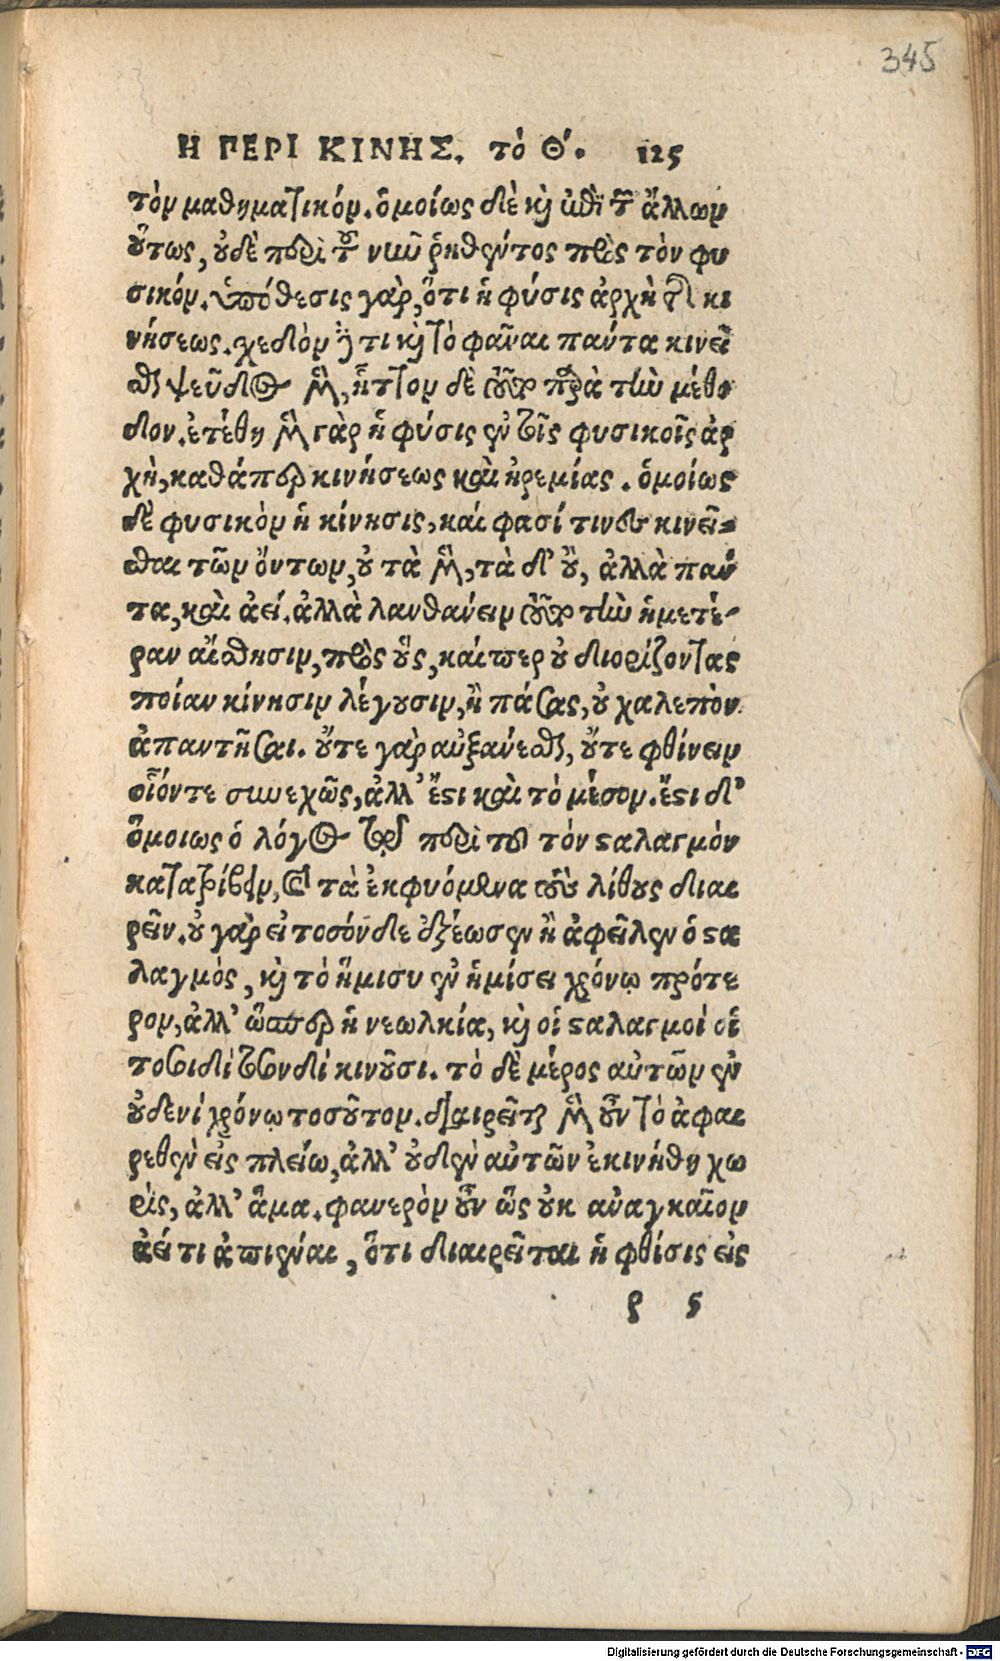 345
Η ΠΕΡΙ ΚΙΝΗΣ. τὸ Θ΄. 125
τὸν μαθηματικόν. ὁμοίως δὲ κὶ ἐπὶ τῶν ἄλλων
οὕτως, οὐδὲ περὶ τοῦ νῦν ῥηθέντος πρὸς τὸν φυ
σικόν. ὑπόθεσις γὰρ, ὅτι ἡ φύσις ἀρχὴ τῆς κι
νήσεως. χεδὸν τι κὶ τὸ φᾶναι πάντα κινεῖ
σθαι ψεῦδος μὲν, ἧττον δὲ παρὰ τὴν μέθο
δον. ἐτέθη μὲν γὰρ ἡ φύσις ἐν τοῖς φυσικοῖς ἀρ
χὴ, καθάπερ κινήσεως καὶ ἠρεμίας. ὁμοίως
δὲ φυσικὸν ἡ κίνησις, καί φασί τινες κινεῖ-
σθαι τῶν ὄντων, οὐ τὰ μὲν, τὰ δ' οὒ, ἀλλὰ πάν
τα, καὶ ἀεί. ἀλλὰ λανθάνειν τὴν ἡμετέ-
ραν αἴσθησιν, πρὸς οὓς, καίπερ οὐ διορίζοντας
ποίαν κίνησιν λέγουσιν, ἢ πάσας, οὐ χαλεπὸν
ἀπαντῆσαι. οὔτε γὰρ αὐξάνεσθαι, οὔτε φθίνειν
οἷόντε συνεχῶς, ἀλλ' ἔστι καὶ τὸ μέσον. ἔστι δ'
ὅμοιως ὁ λόγος τῷ περὶ του τὸν σταλαγμὸν
κατατρίβειν, καὶ τὰ ἐκφυόμενα τοὺς λίθους διαι
ρεῖν. οὐ γὰρ εἰ τοσόνδε ἐξέωσεν ἢ ἀφεῖλεν ὁ στα
λαγμὸς, κὶ τὸ ἥμισυ ἐν ἡμίσει χρόνῳ πρότε
ρον, ἀλλ' ὥσπερ ἡ νεωλκία, κὶ οἱ σταλαγμοί οἱ
τοσοιδὶ τοσονδί κινοῦσι. τὸ δὲ μέρος αὐτῶν ἐν
οὐδενί χρόνῳ τοσοῦτον. διαιρεῖται μὲν οὖν τὸ ἀφαι
ρεθὲν εἰς πλείω, ἀλλ' οὐδὲν αὐτῶν ἐκινήθη χω
ρὶς, ἀλλ' ἅμα. φανερὸν οὖν ὡς οὐκ ἀναγκαῖον
ἀεί τι ἀπιέναι, ὅτι διαιρεῖται ἡ φθίσις εἰς
ρ 5
Digitalisierung gefördert durch die Deutsche Forschungsgemeinschaft - DFG